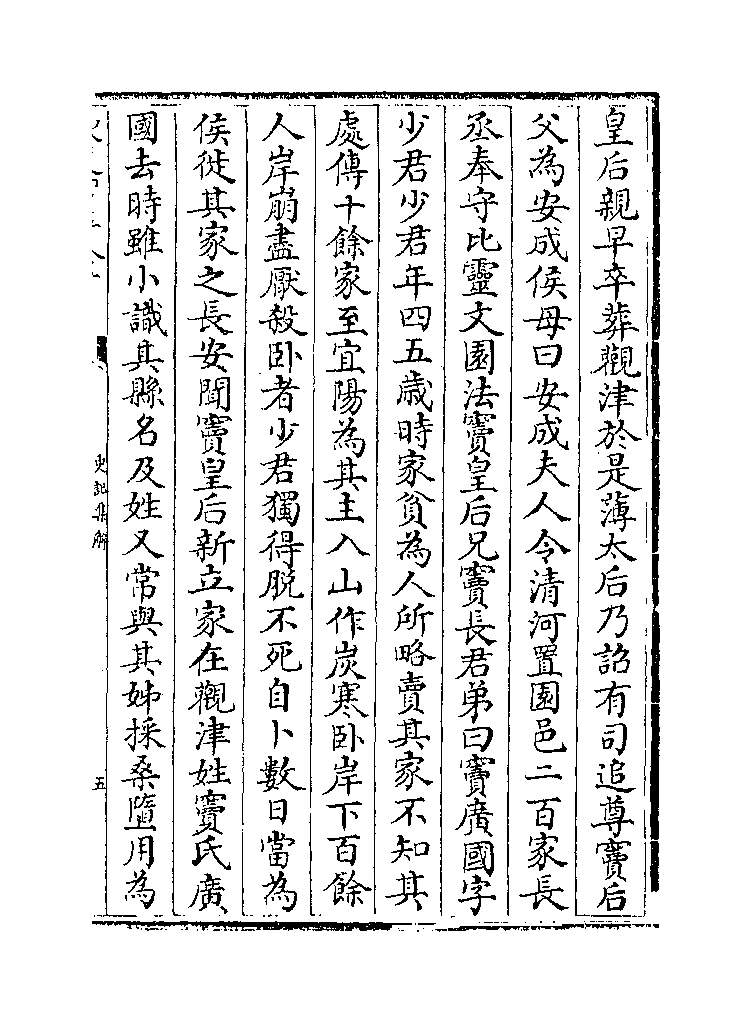 皇后親早卒葬觀津於是薄太后乃詔有司追尊竇后
父為安成侯母曰安成夫人令清河置園邑二百家長
丞奉守比靈文園法竇皇后兄竇長君弟曰竇廣國字
少君少君年四五歲時家貧為人所略賣其家不知其
處傳十餘家至宜陽為其主入山作炭寒卧岸下百餘
人岸崩盡厭殺卧者少君獨得脫不死自卜數日當為
侯從其家之長安聞竇皇后新立家在觀津姓竇氏廣
國去時雖小識其縣名及姓又常與其姊採桑墮用為
史記集解
五